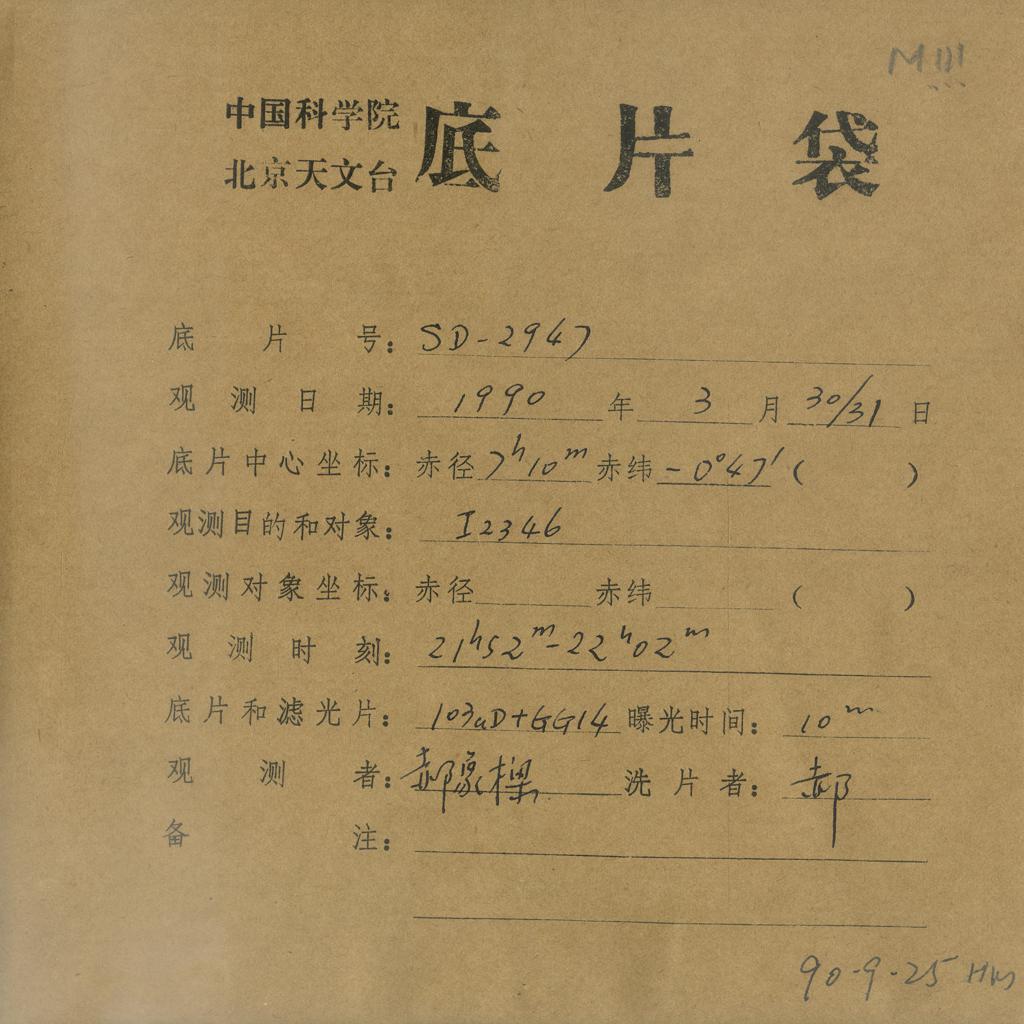 M111
中国科学院
北京天文台 底片袋
底片号：SD-2947
观测日期：1990年3月30/31日
底片中心坐标：赤径7h10m赤纬-0°47′（ ）
观测目的和对象：I2346
观测对象坐标：赤径 赤纬 （ ）
观测时刻：21h52m-22h02m
底片和滤光片：103aD+GG14 曝光时间：10m
观测者：郝象樑 洗片者：郝
备注：
90-9-25